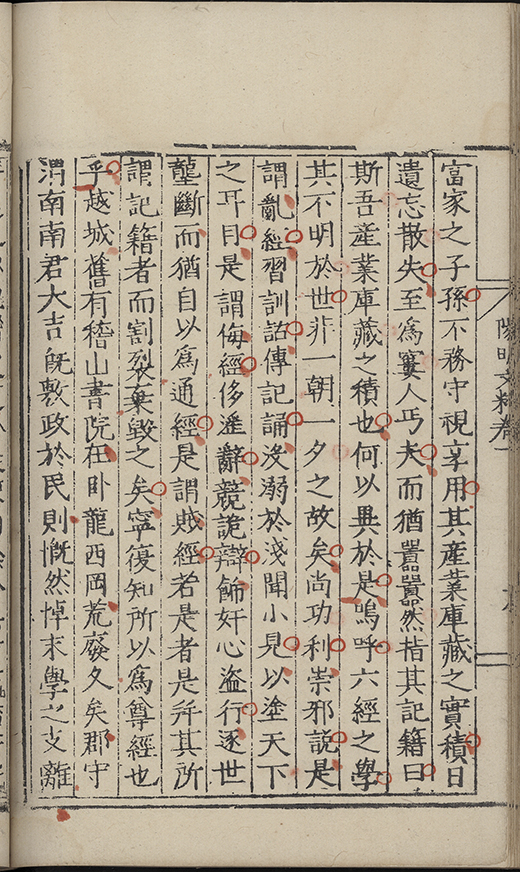 陽明文粹卷一
富家之子孫不務守視享用其產業庫藏之實積日
遺忘散失至為窶人丐夫而猶囂囂然指其記籍曰
斯吾產業庫藏之積也何以異於是嗚呼六經之學
其不明於世非一朝一夕之故矣尚功利崇邪說是
謂亂經習訓詁傳記誦沒溺於淺聞小見以塗天下
之耳目是謂侮經侈淫辭競詭辯飾奸心盜行逐世
壟斷而猶自以為通經是謂賊經若是者是并其所
謂記籍者而割裂棄毀之矣寧復知所以為尊經也
乎越城舊有稽山書院在卧龍西岡荒廢久矣郡守
渭南南君大吉既敷政於民則慨然悼末學之支離